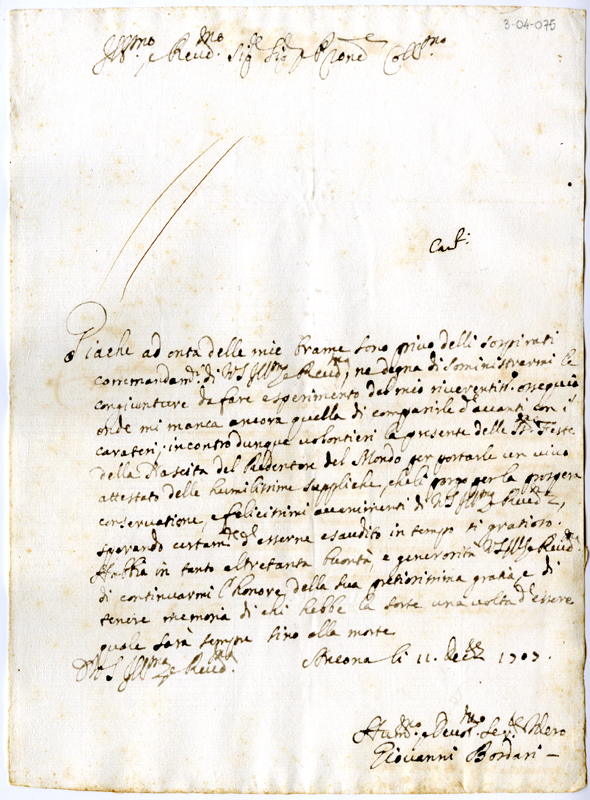 3-04-075
Ill.mo e Reud.mo Sig.r Sig.r e Pron.e Coll.mo
Cast:
Giache ad onta delle mie brame sono privo delli sospirati
commandam.ti di V S Ill.ma e Reud.ma, ne degna di somministrarmi le
congiunture da fare esperimento del mio riverentiss.o ossequio
onde mi manca ancora quella di comparirle d'avanti con i
carateri; incontro dunque volontieri la presente delle S.te Feste
della Nascita del Redentore del Mondo per portarle un vivo
attestato delle humilissime suppliche, che li porgo per la prospera
conservatione, e felicissimi avvenimenti di V S Ill.ma e Reud.ma,
sperando certam.te d'esserne esaudito in tempo si gratioso.
Habbia in tanto altretanta buontà, e generosità V S Ill.ma e Reud.ma
di continuarmi l'honore della sua pretiosissima gratia, e di
tenere memoria di chi hebbe la sorte una volta d'essere
quale sarà sempre sino alla morte
D V S Ill.ma e Reud.ma Ancona li 11. Dec.bre 1707.
Hu.mo e Deuot.mo Se.re Vero
Giovanni Bordari